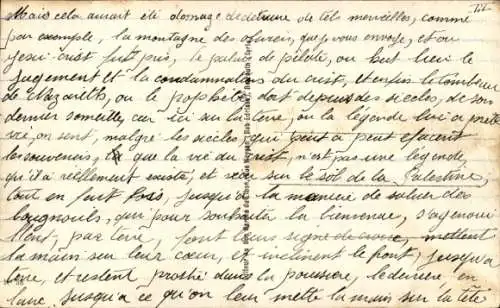 Mais cela aurait été domage de détruire de tels merveilles, comme
par exemple, la montagne des oliviers, que je vous envoye, et ou
Jesus-crist fut pris, le palais de pilate, ou eut lieu le
jugement et la condamnations du crist, et enfin le tombeau
de Nazareth, ou le prophète dort depuis des siècles, de son
dernier someille, car ici sur la terre, ou la légende lui a prété
vie, on sent, malgré les siècles qui peut a peut effacent
les souvenirs, que la vie du crist, n'est pas une légende,
qu'il a réellement existé, et sur le sol de la Palestine,
tout en fait foi, jusqu'a la manière de saluer des
bougnouls, qui pour souhaiter la bienvenue, s'agenoui
llent, par terre, font leurs signe de croix, mettent
la main sur leur cœur, et inclinent le front, jusqu'a
terre, et restent prosté dans la poussière, le derrière en
l'air. Jusqu'a ce qu'on leur mette la main sur la tête